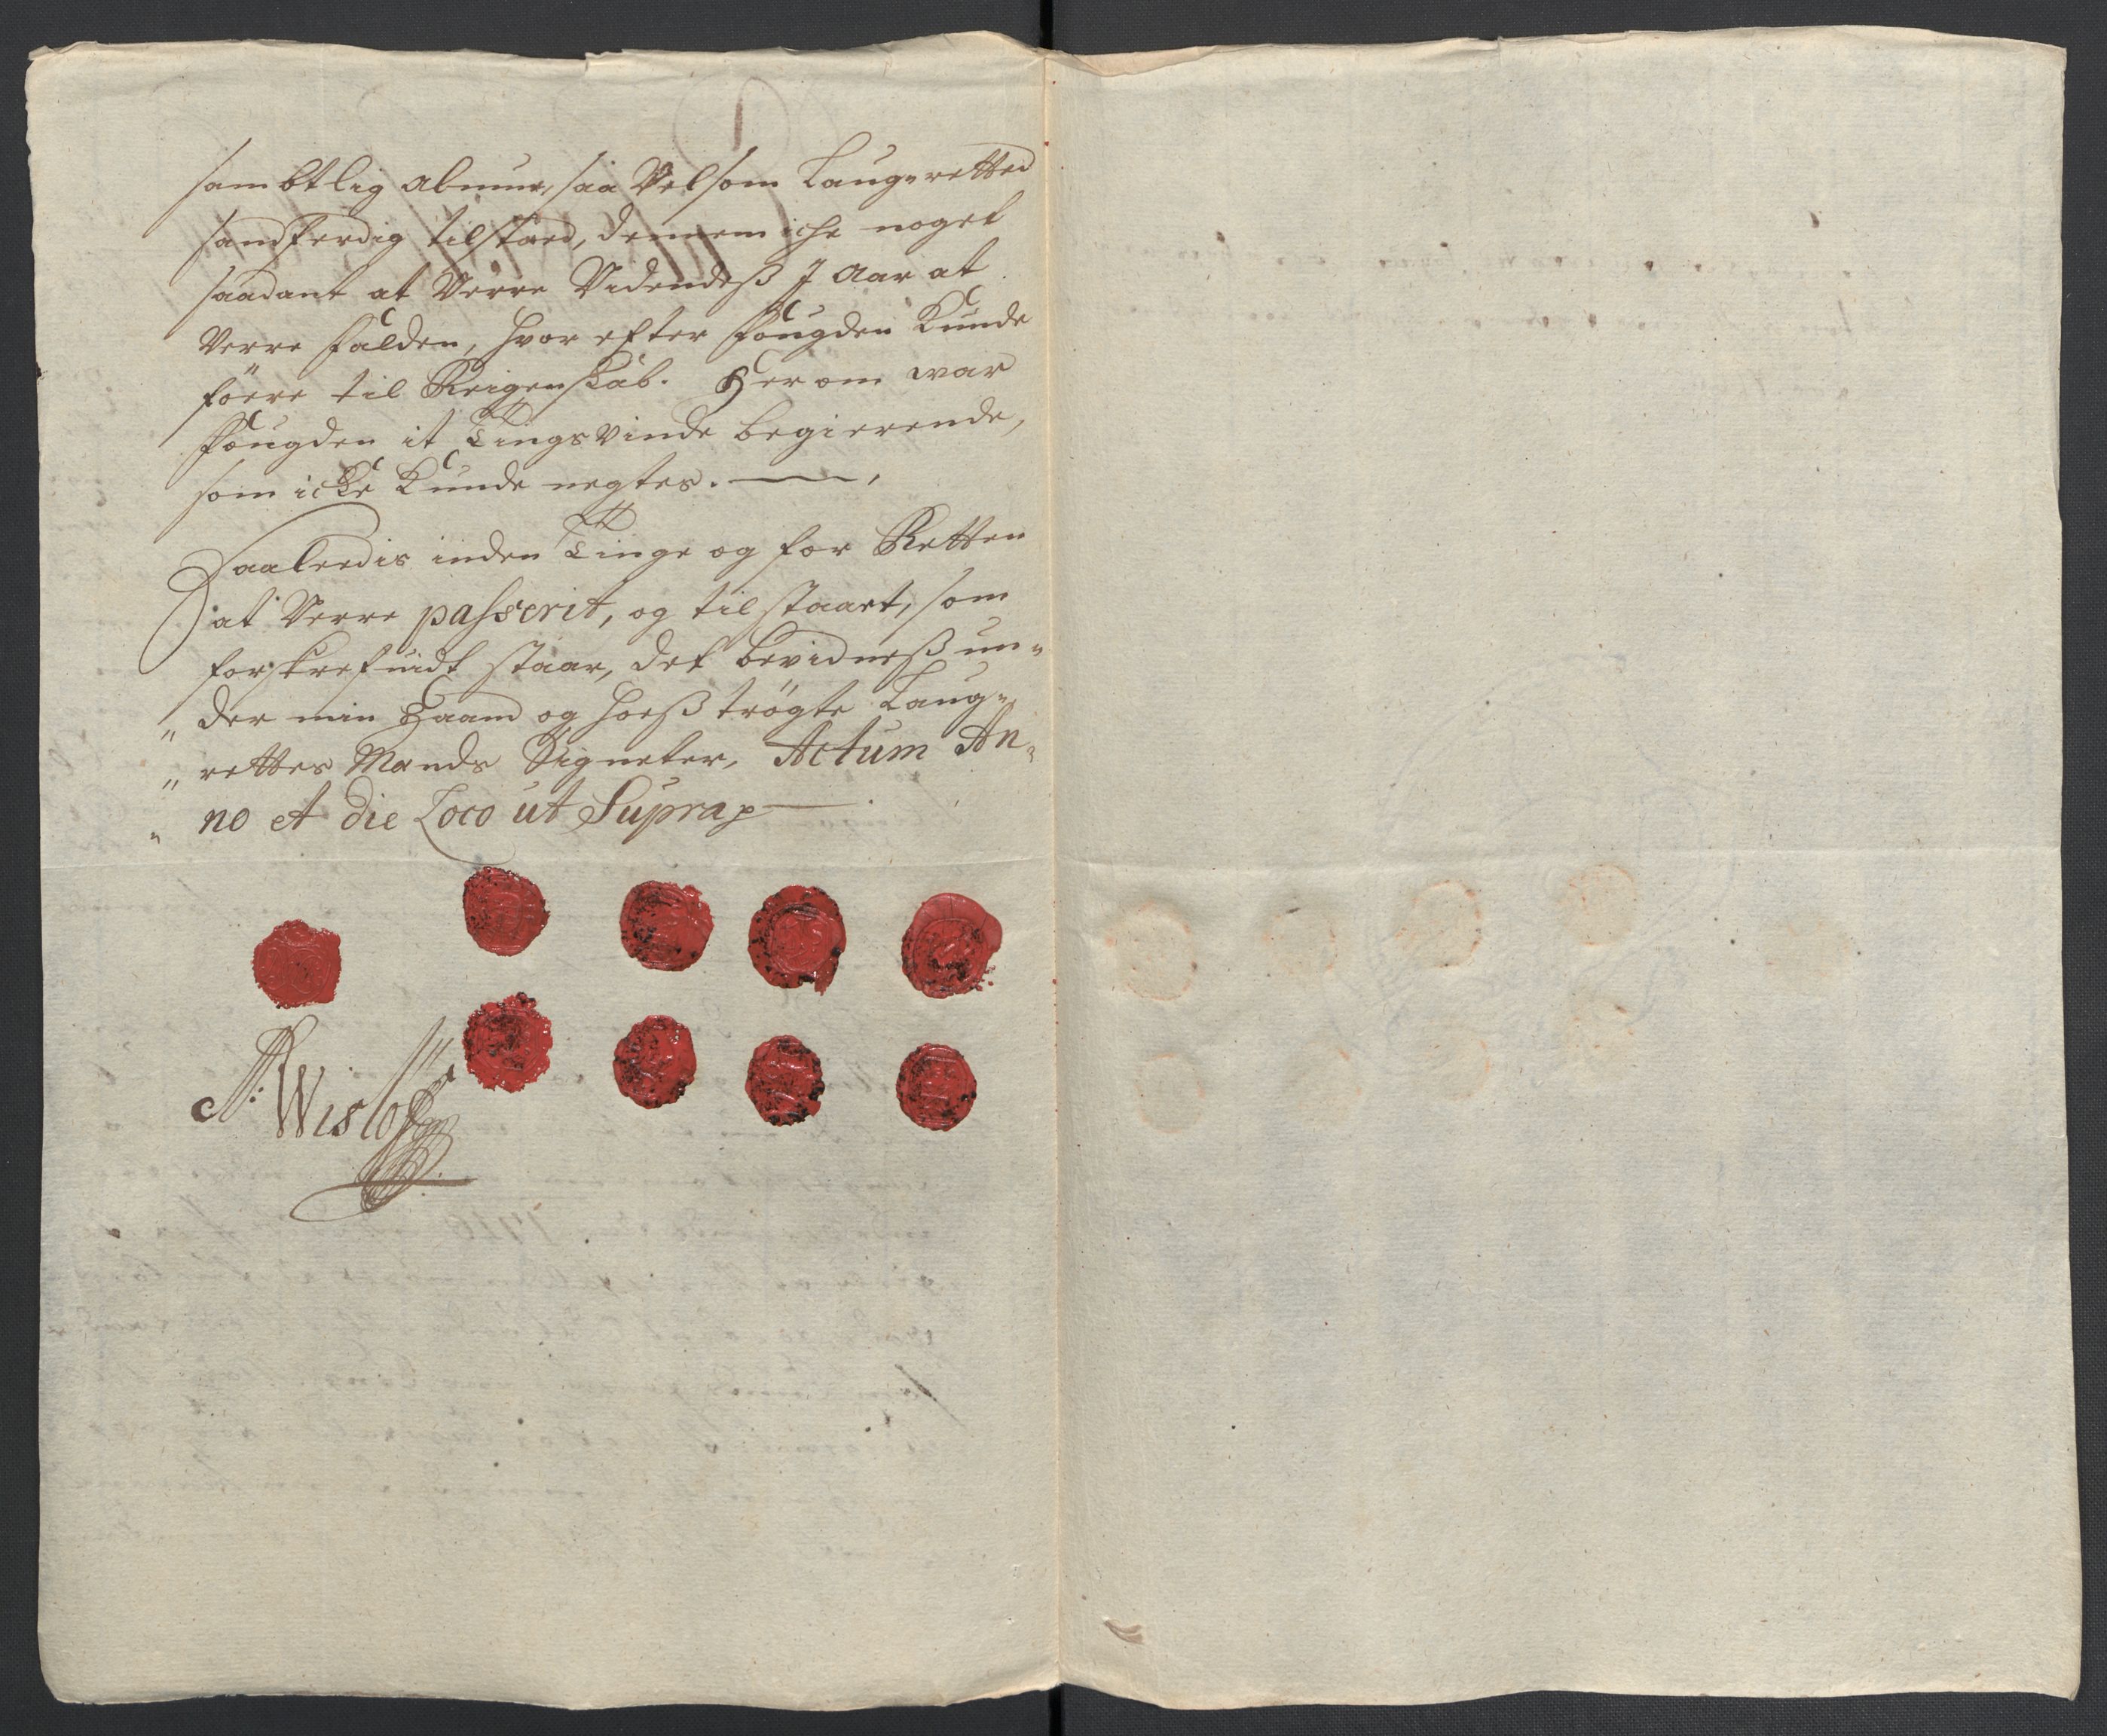 sambtlig Almue, saa Velsom Laug=retted
sandferdig tilstaed, dennem iche noget
saadant at Verre Videndeß J Aar at
Verre falden, hvor efter fougden Kunde
föere til Reigenskab. Her om war
fougden it Tingsvinde begierende,
som icke Kunde negtes.
Saaleedis inden Tinge og for Retten
at Verre passerit, og tilstaaet, som
forskrefuidt staar, det bevidneß un=
der min Haand og hoeß trögte Laug=
rettes Mands Signeter, Actum An=
no et die Loco ut Supra
A: Wisløff